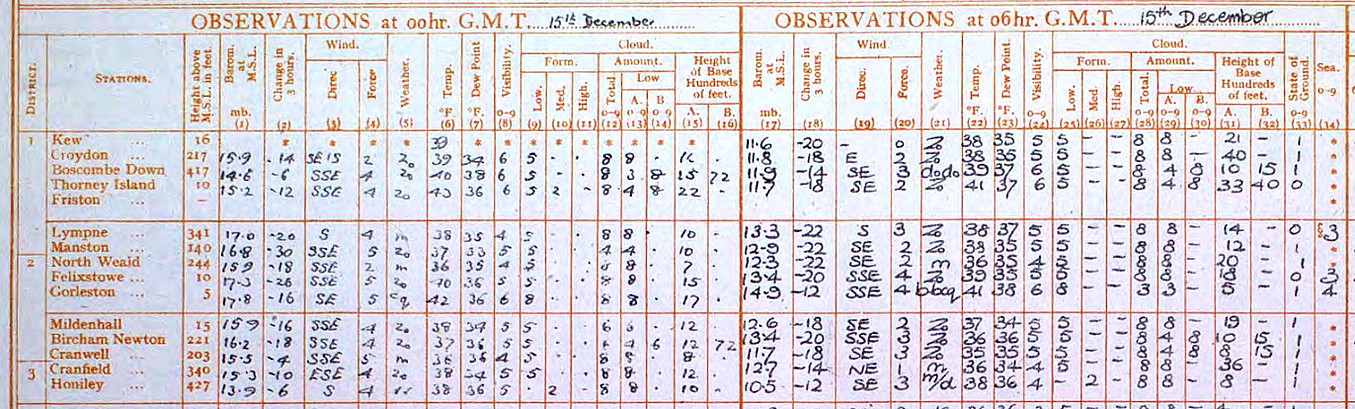 OBSERVATIONS at 00hr. G.M.T. 15th December OBSERVATIONS at 06hr. G.M.T. 15th December
DISTRICT. STATIONS. Height above M.S.L. in feet. Barom. at M.S.L. Change in 3 hours. Wind. Weather. Temp. Dew Point Visibility. Cloud. Barom. at M.S.L. Change in 3 hours. Wind Weather. Temp. Dew Point. Visibility. Cloud. State of Ground. Sea.
Direc Force Form. Amount. Height of Base Hundreds of feet. Direc. Force. Form. Amount. Height of Base Hundreds of feet.
Low. Med. High. Total. Low A. B. A. B. Low. Med. High. Total. Low. A. B. A. B.
mb. °F. °F. 0–9 0–9 0–9 0–9 mb. °F. °F. 0–9 0–9 0–9 0–9 0–9 0–9
(1) (2) (3) (4) (5) (6) (7) (8) (9) (10) (11) (12) (13) (14) (15) (16) (17) (18) (19) (20) (21) (22) (23) (24) (25) (26) (27) (28) (29) (30) (31) (32) (33) (34)
1 Kew ... 16 * * * * 39 * * * * * * * * * * 11.6 -20 - 0 38 35 5 5 - - 8 8 - 21 - 1 *
Croydon ... 217 15.9 -14 SE'S 2 39 34 6 5 · · 8 8 · · 11.8 -18 E 2 38 35 5 5 - - 8 8 - 40 - 1 *
Boscombe Down 417 14.6 -6 SSE 4 40 38 6 5 · · 8 3 8 15 72 11.9 -14 SE 3 dodo 39 37 6 5 - - 8 4 8 10 15 1 *
Thorney Island 10 15.2 -12 SSE 4 43 36 6 5 2 - 8 4 8 22 · 11.7 -18 SE 2 41 37 6 5 - - 8 4 8 33 40 0 *
Friston ... – *
Lympne ... 341 17.0 -20 S 4 m 38 35 4 5 · · 8 8 · 10 · 13.3 -22 S 3 38 37 5 5 - - 8 8 - 14 - 0 3
Manston ... 140 16.8 -30 SSE 5 37 33 5 5 · · 4 4 · 10 · 12.9 -22 SE 2 38 35 5 5 - - 8 8 - 12 - 1 *
2 North Weald 244 15.9 -18 SSE 2 m 36 35 4 5 · · 8 · 7 · 12.3 -22 SE 2 m 36 35 4 5 - - 8 8 - 20 - 1 *
Felixstowe ... 10 17.3 -26 SSE 5 40 36 5 5 · · 8 8 · 15 · 13.4 -20 SSE 4 39 35 5 5 - - 8 8 - 8 - 0 3
Gorleston ... 5 17.8 -16 SE 5 cq 42 36 6 8 · · 8 8 · 17 · 14.9 -12 SSE 4 bbcq 41 38 6 8 - - 3 3 - 5 - 1 4
Mildenhall 15 15.9 -16 SSE 4 38 34 5 5 · · 6 · 12 · 12.6 -18 SE 2 37 34 5 5 - - 8 8 - 19 - 1 *
Bircham Newton 221 16.2 -18 SSE 4 37 36 5 5 · · 4 6 12 72 13.4 -20 SSE 3 36 36 5 5 - - 8 4 8 10 15 1 *
Cranwell 203 15.5 -4 SSE 5 m 36 36 4 5 · · 8 8 · 8 · 11.7 -18 SE 3 35 35 5 5 - - 8 4 8 8 15 1 *
3 Cranfield ... 340 15.3 -10 ESE 4 38 34 5 5 · · 8 8 · 12 · 12.7 -14 NE 1 36 34 4 5 - - 8 8 - 36 - 1 *
Honiley ... 427 13.9 -6 S 4 38 36 5 · 2 · 8 8 · 10 · 10.5 -12 SE 3 m/d 38 36 4 - 2 - 8 8 - 8 - 1 *